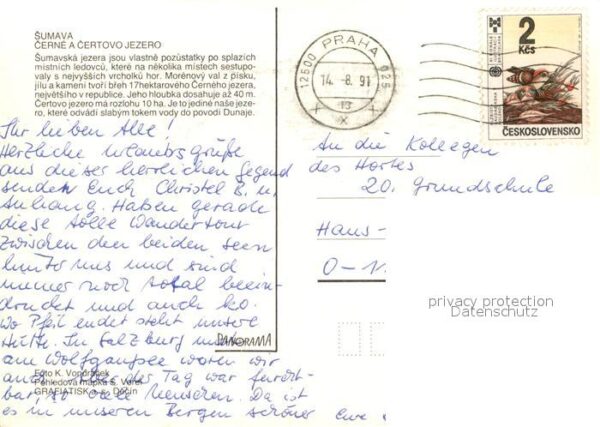 ŠUMAVA
ČERNÉ A ČERTOVO JEZERO
Šumavská jezera jsou vlastně pozůstatky po splazích
místních ledovců, které na několika místech sestupo-
valy s nejvyšších vrcholků hor. Morénový val z písku,
jílu a kamení tvoří břeh 17hektarového Černého jezera,
největšího v republice. Jeho hloubka dosahuje až 40 m.
Čertovo jezero má rozlohu 10 ha. Je to jediné naše jeze-
ro, které odvádí slabým tokem vody do povodí Dunaje.
Ihr lieben Alle!
Herzliche Urlaubsgrüße
aus dieser herrlichen Gegend
senden Euch Christel B. u.
Anhang. Haben gerade
diese tolle Wandertour
zwischen den beiden Seen
hinter uns und sind
immer noch total beein-
druckt und auch ko.
Wo Pfeil endet steht unsere
Hütte. In Salzburg und
am Wolfgangsee waren wir
auch. Der Tag war furcht-
bar, so viele Menschen. Da ist
es in unseren Bergen schöner Eure
Foto K. Vondrášek
Pohledová mapka S. Verel
GRAFIATISK a. s. Děčín
PANORAMA
12600 PRAHA 025
14.-8.91
13
2
Kčs
ČESKOSLOVENSKO
An die Kollegen
des Hortes
20. Grundschule
Hans-
O-1
privacy protection
Datenschutz